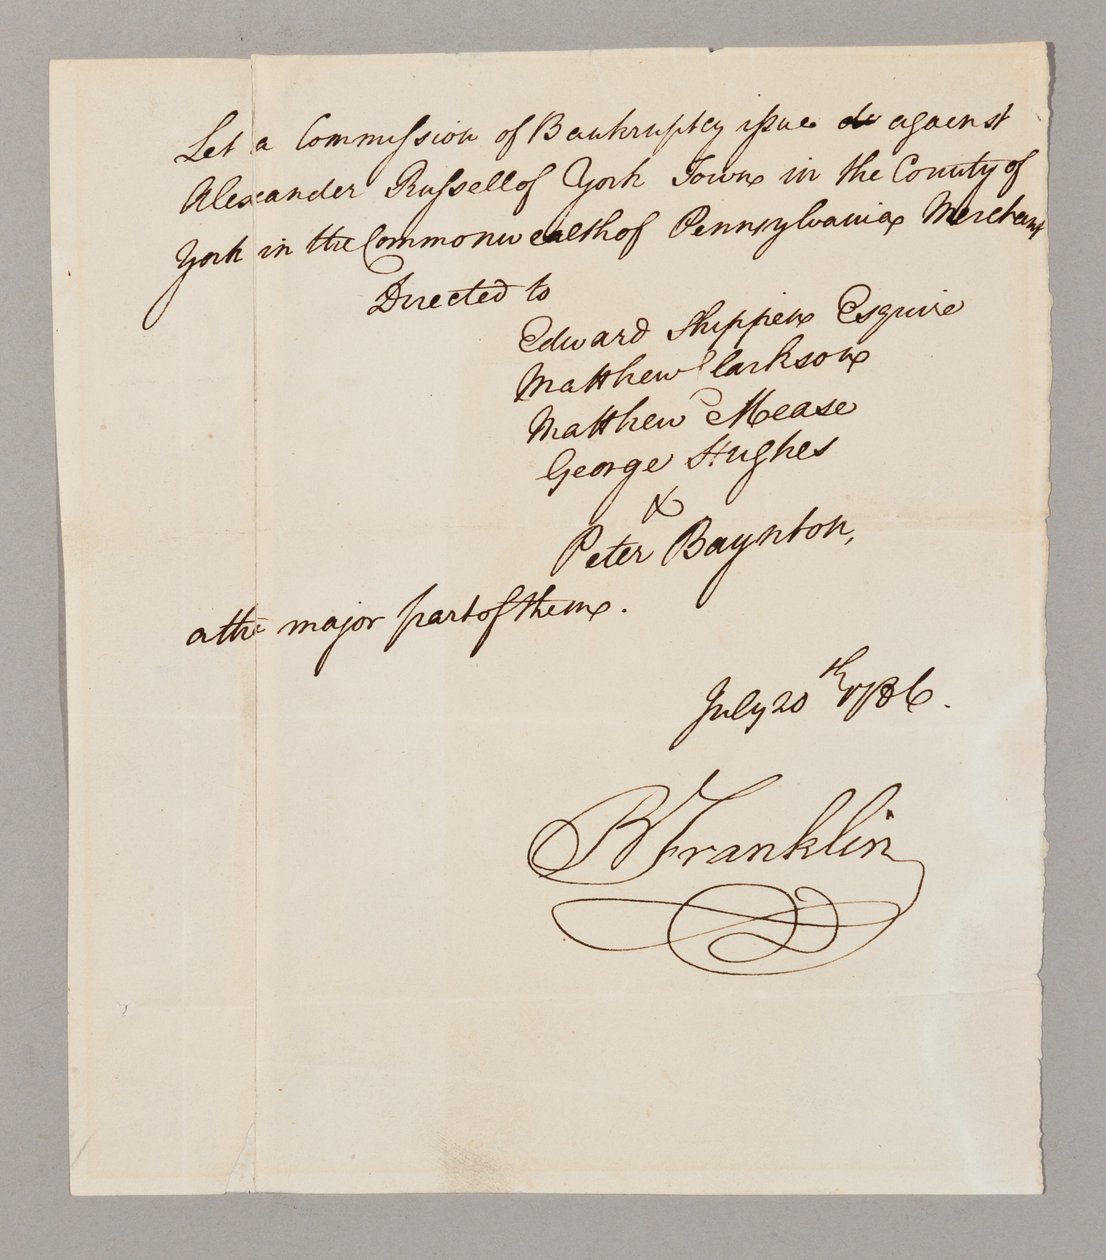 Let a Commission of Bankruptcy issue against
Alexander Russell of York Town in the County of
York in the Commonwealth of Pennsylvania Merchant
Directed to
Edward Shippen Esquire
Matthew Clarkson
Matthew Mease
George Hughes
&
Peter Baynton,
a the major part of them.
July 20th 1786.
B Franklin